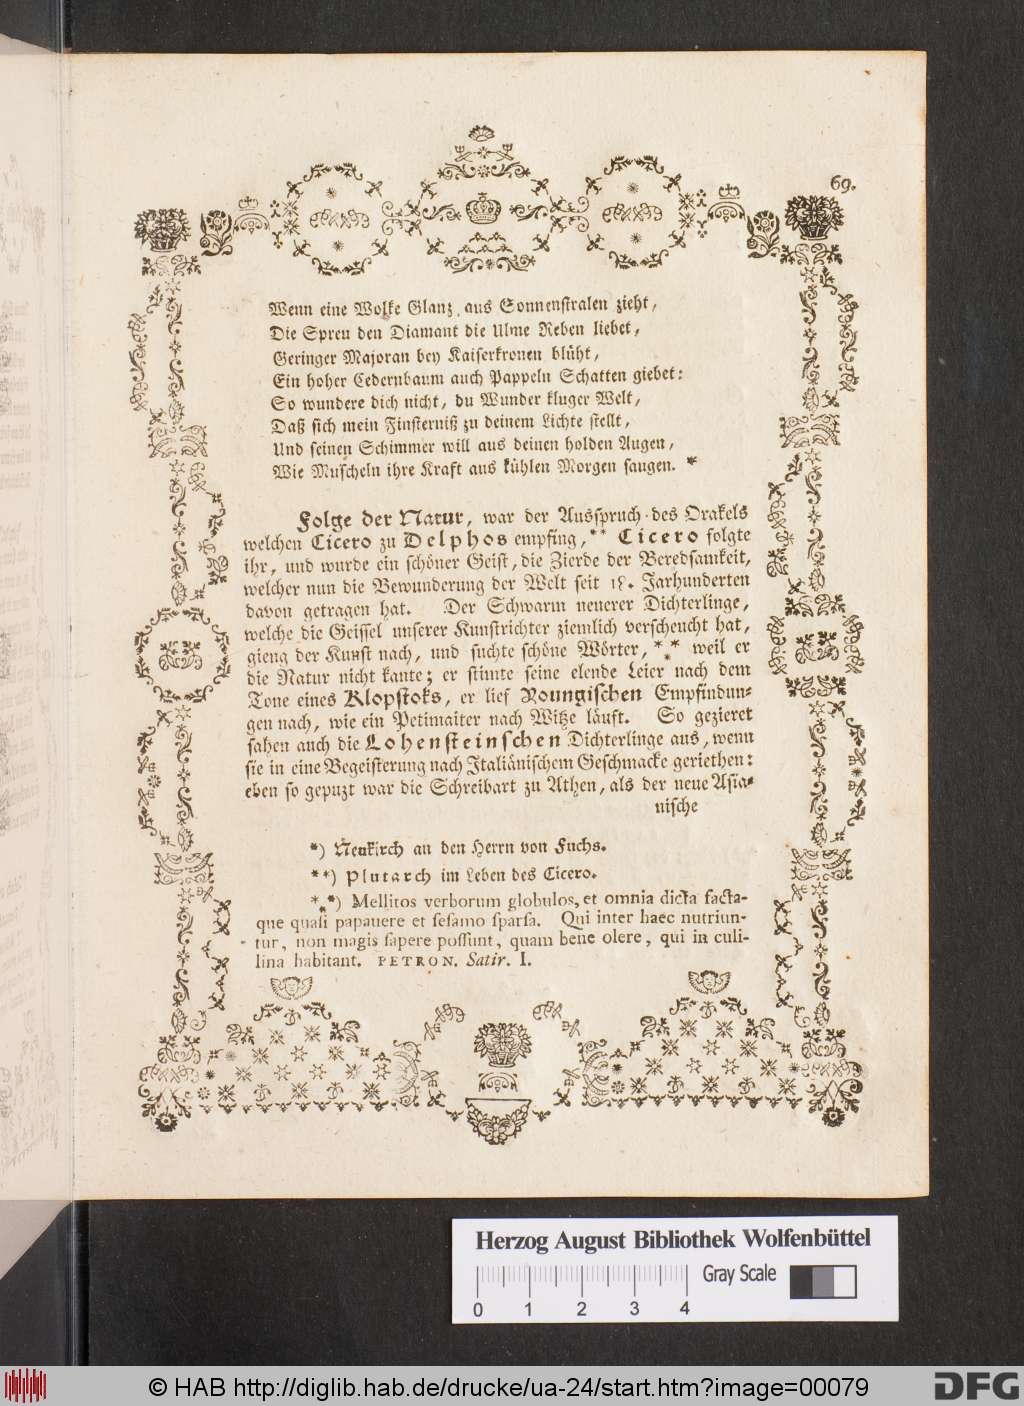 69.
Wenn eine Wolke Glanz aus Sonnenstralen zieht,
Die Spreu den Diamant die Ulme Reben liebet,
Geringer Majoran bey Kaiserkronen blüht,
Ein hoher Cedernbaum auch Pappeln Schatten giebet:
So wundere dich nicht, du Wunder kluger Welt,
Daß sich mein Finsterniß zu deinem Lichte stellt,
Und seinen Schimmer will aus deinen holden Augen,
Wie Muscheln ihre Kraft aus kühlen Morgen saugen. *
Folge der Natur, war der Ausspruch des Orakels
welchen Cicero zu Delphos empfing, ** Cicero folgte
ihr, und wurde ein schöner Geist, die Zierde der Beredsamkeit,
welcher nun die Bewunderung der Welt seit 18. Jarhunderten
davon getragen hat. Der Schwarm neuerer Dichterlinge,
welche die Geissel unserer Kunstrichter ziemlich verscheucht hat,
gieng der Kunst nach, und suchte schöne Wörter, *** weil er
die Natur nicht kante; er stimte seine elende Leier nach dem
Tone eines Klopstoks, er lief Noungischen Empfindun-
gen nach, wie ein Petimaiter nach Witze läuft. So gezieret
sahen auch die Lohensteinschen Dichterlinge aus, wenn
sie in eine Begeisterung nach Italiänischem Geschmacke geriethen:
eben so gepuzt war die Schreibart zu Athen, als der neue Asia-
nische
*) Neukirch an den Herrn von Fuchs.
**) Plutarch im Leben des Cicero.
***) Mellitos verborum globulos, et omnia dicta facta-
que quasi papavere et sesamo sparsa. Qui inter haec nutriun-
tur, non magis sapere possunt, quam bene olere, qui in culi-
lina habitant. PETRON. Satir. I.
Herzog August Bibliothek Wolfenbüttel
0 1 2 3 4 Gray Scale
© HAB http://diglib.hab.de/drucke/ua-24/start.htm?image=00079
DFG